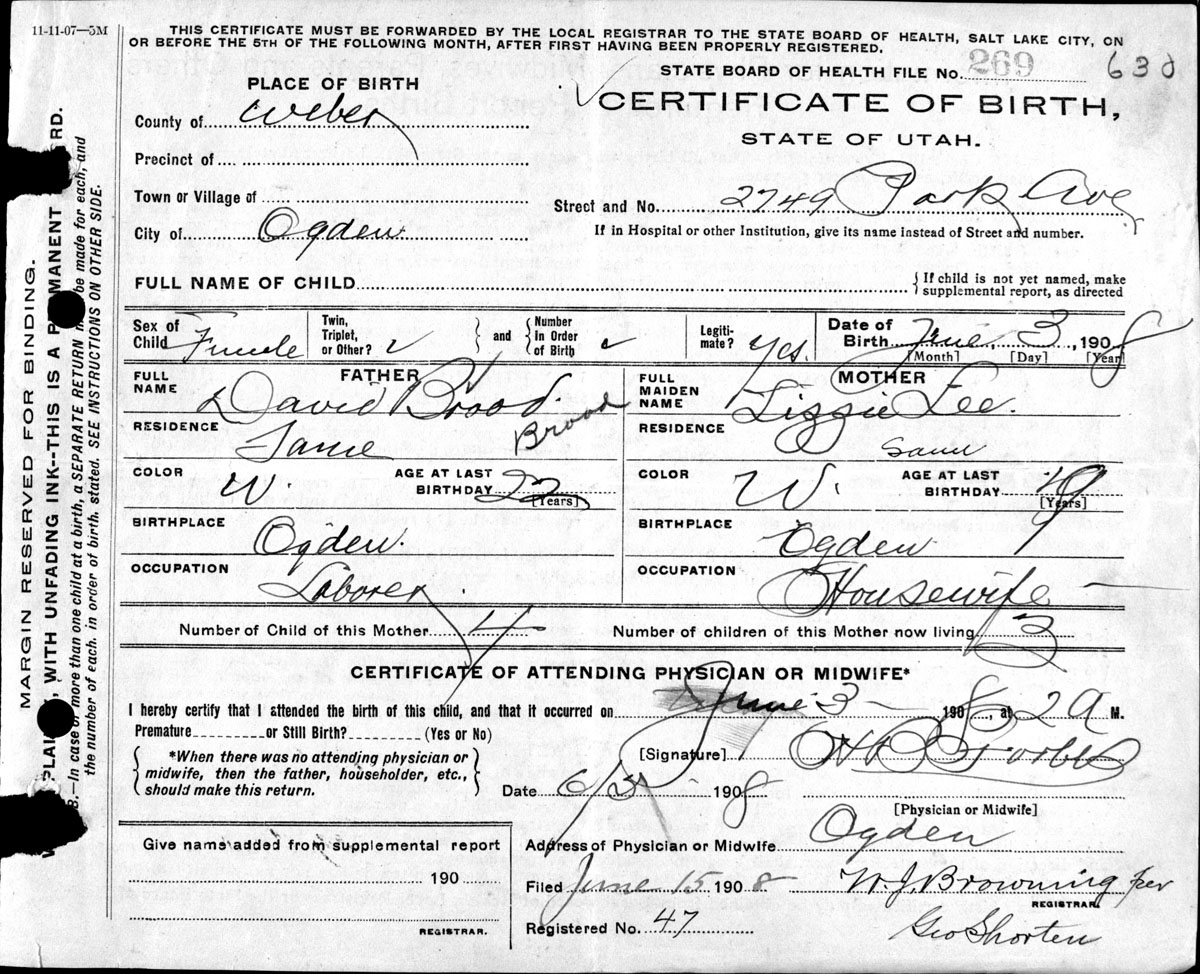 11-11-07—5M
THIS CERTIFICATE MUST BE FORWARDED BY THE LOCAL REGISTRAR TO THE STATE BOARD OF HEALTH, SALT LAKE CITY, ON
OR BEFORE THE 5TH OF THE FOLLOWING MONTH, AFTER FIRST HAVING BEEN PROPERLY REGISTERED.
STATE BOARD OF HEALTH FILE No. 269 630
PLACE OF BIRTH
CERTIFICATE OF BIRTH,
STATE OF UTAH.
County of Weber
Precinct of
Town or Village of
Street and No. 2749 Park Ave
City of Ogden
If in Hospital or other Institution, give its name instead of Street and number.
FULL NAME OF CHILD
{If child is not yet named, make
supplemental report, as directed
Sex of Child Female
Twin, Triplet, or Other?
and
Number In Order of Birth
Legiti- mate? Yes.
Date of Birth June 3, 1908
[Month] [Day] [Year]
FATHER
FULL NAME David Brood. Brood
RESIDENCE Same
COLOR W.
AGE AT LAST BIRTHDAY 22
[Years]
BIRTHPLACE Ogden.
OCCUPATION Laborer.
MOTHER
FULL MAIDEN NAME Lizzie Lee.
RESIDENCE Same
COLOR W.
AGE AT LAST BIRTHDAY 19
[Years]
BIRTHPLACE Ogden
OCCUPATION Housewife
Number of Child of this Mother 4
Number of children of this Mother now living 3
CERTIFICATE OF ATTENDING PHYSICIAN OR MIDWIFE*
I hereby certify that I attended the birth of this child, and that it occurred on June 3 1908, at 2 A M.
Premature? or Still Birth? (Yes or No)
*When there was no attending physician or
midwife, then the father, householder, etc.,
should make this return.
[Signature]
Date 6/5 1908
[Physician or Midwife]
Address of Physician or Midwife Ogden
Give name added from supplemental report
190
REGISTRAR.
Filed June 15 1908 W. J. Browning per
REGISTRAR.
Registered No. 47 Geo Shorten
MARGIN RESERVED FOR BINDING.
PLAI, WITH UNFADING INK--THIS IS A P MANENT ORD.
B.—In case of more than one child at a birth, a SEPARATE RETURN be made for each, and
the number of each, in order of birth, stated. SEE INSTRUCTIONS ON OTHER SIDE.